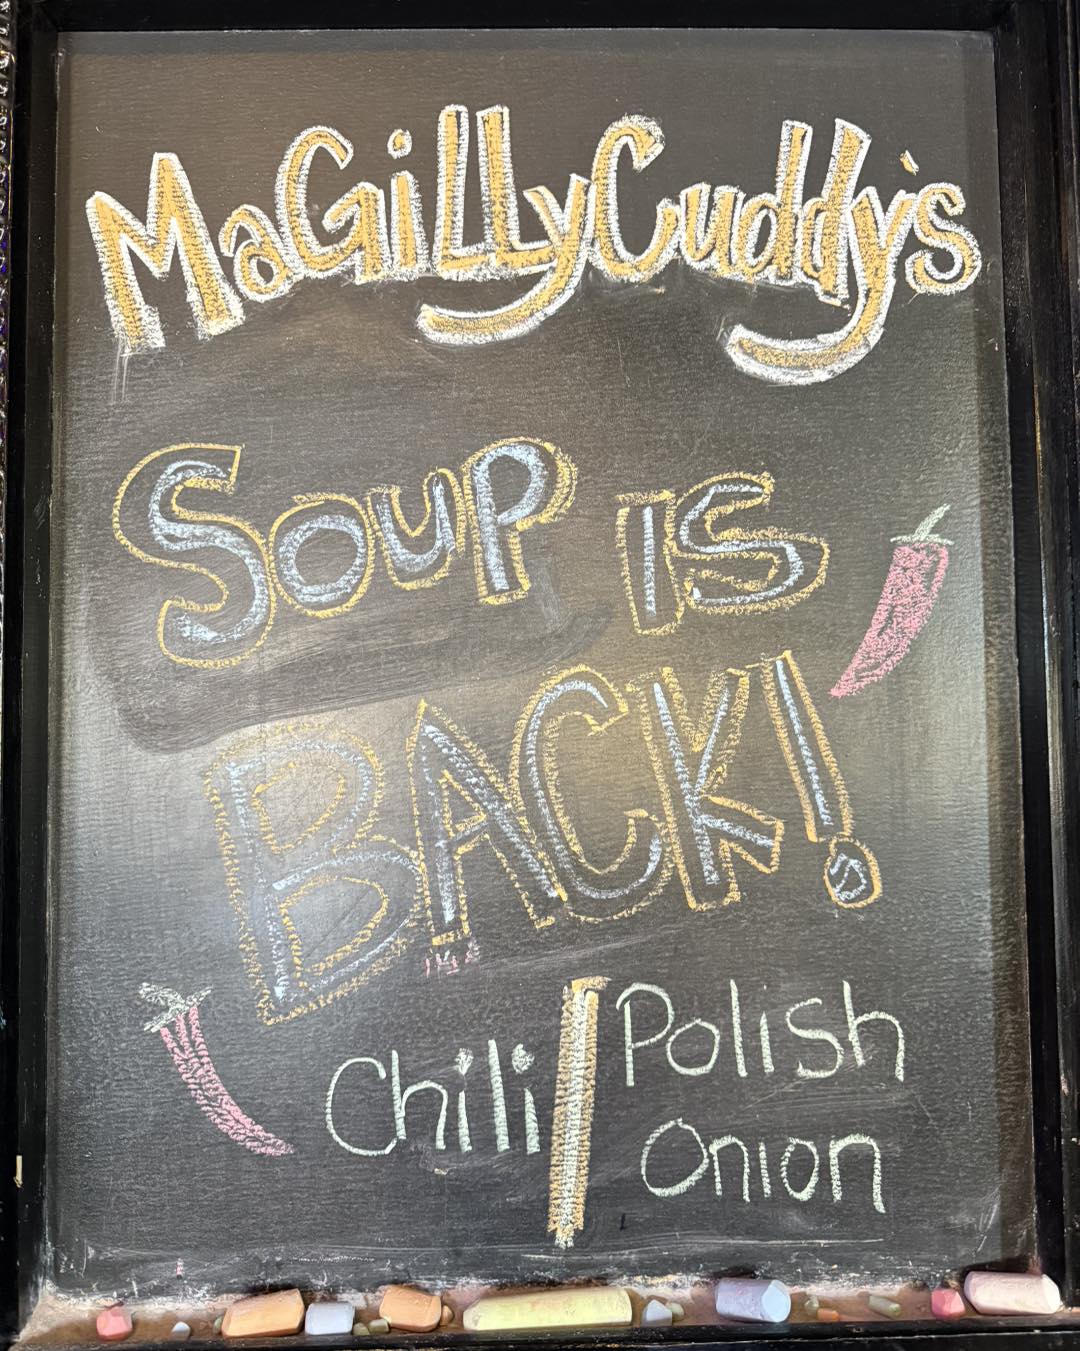 MaGiLLyCuddy's
Soup is
BACK!
Chili
Polish
Onion